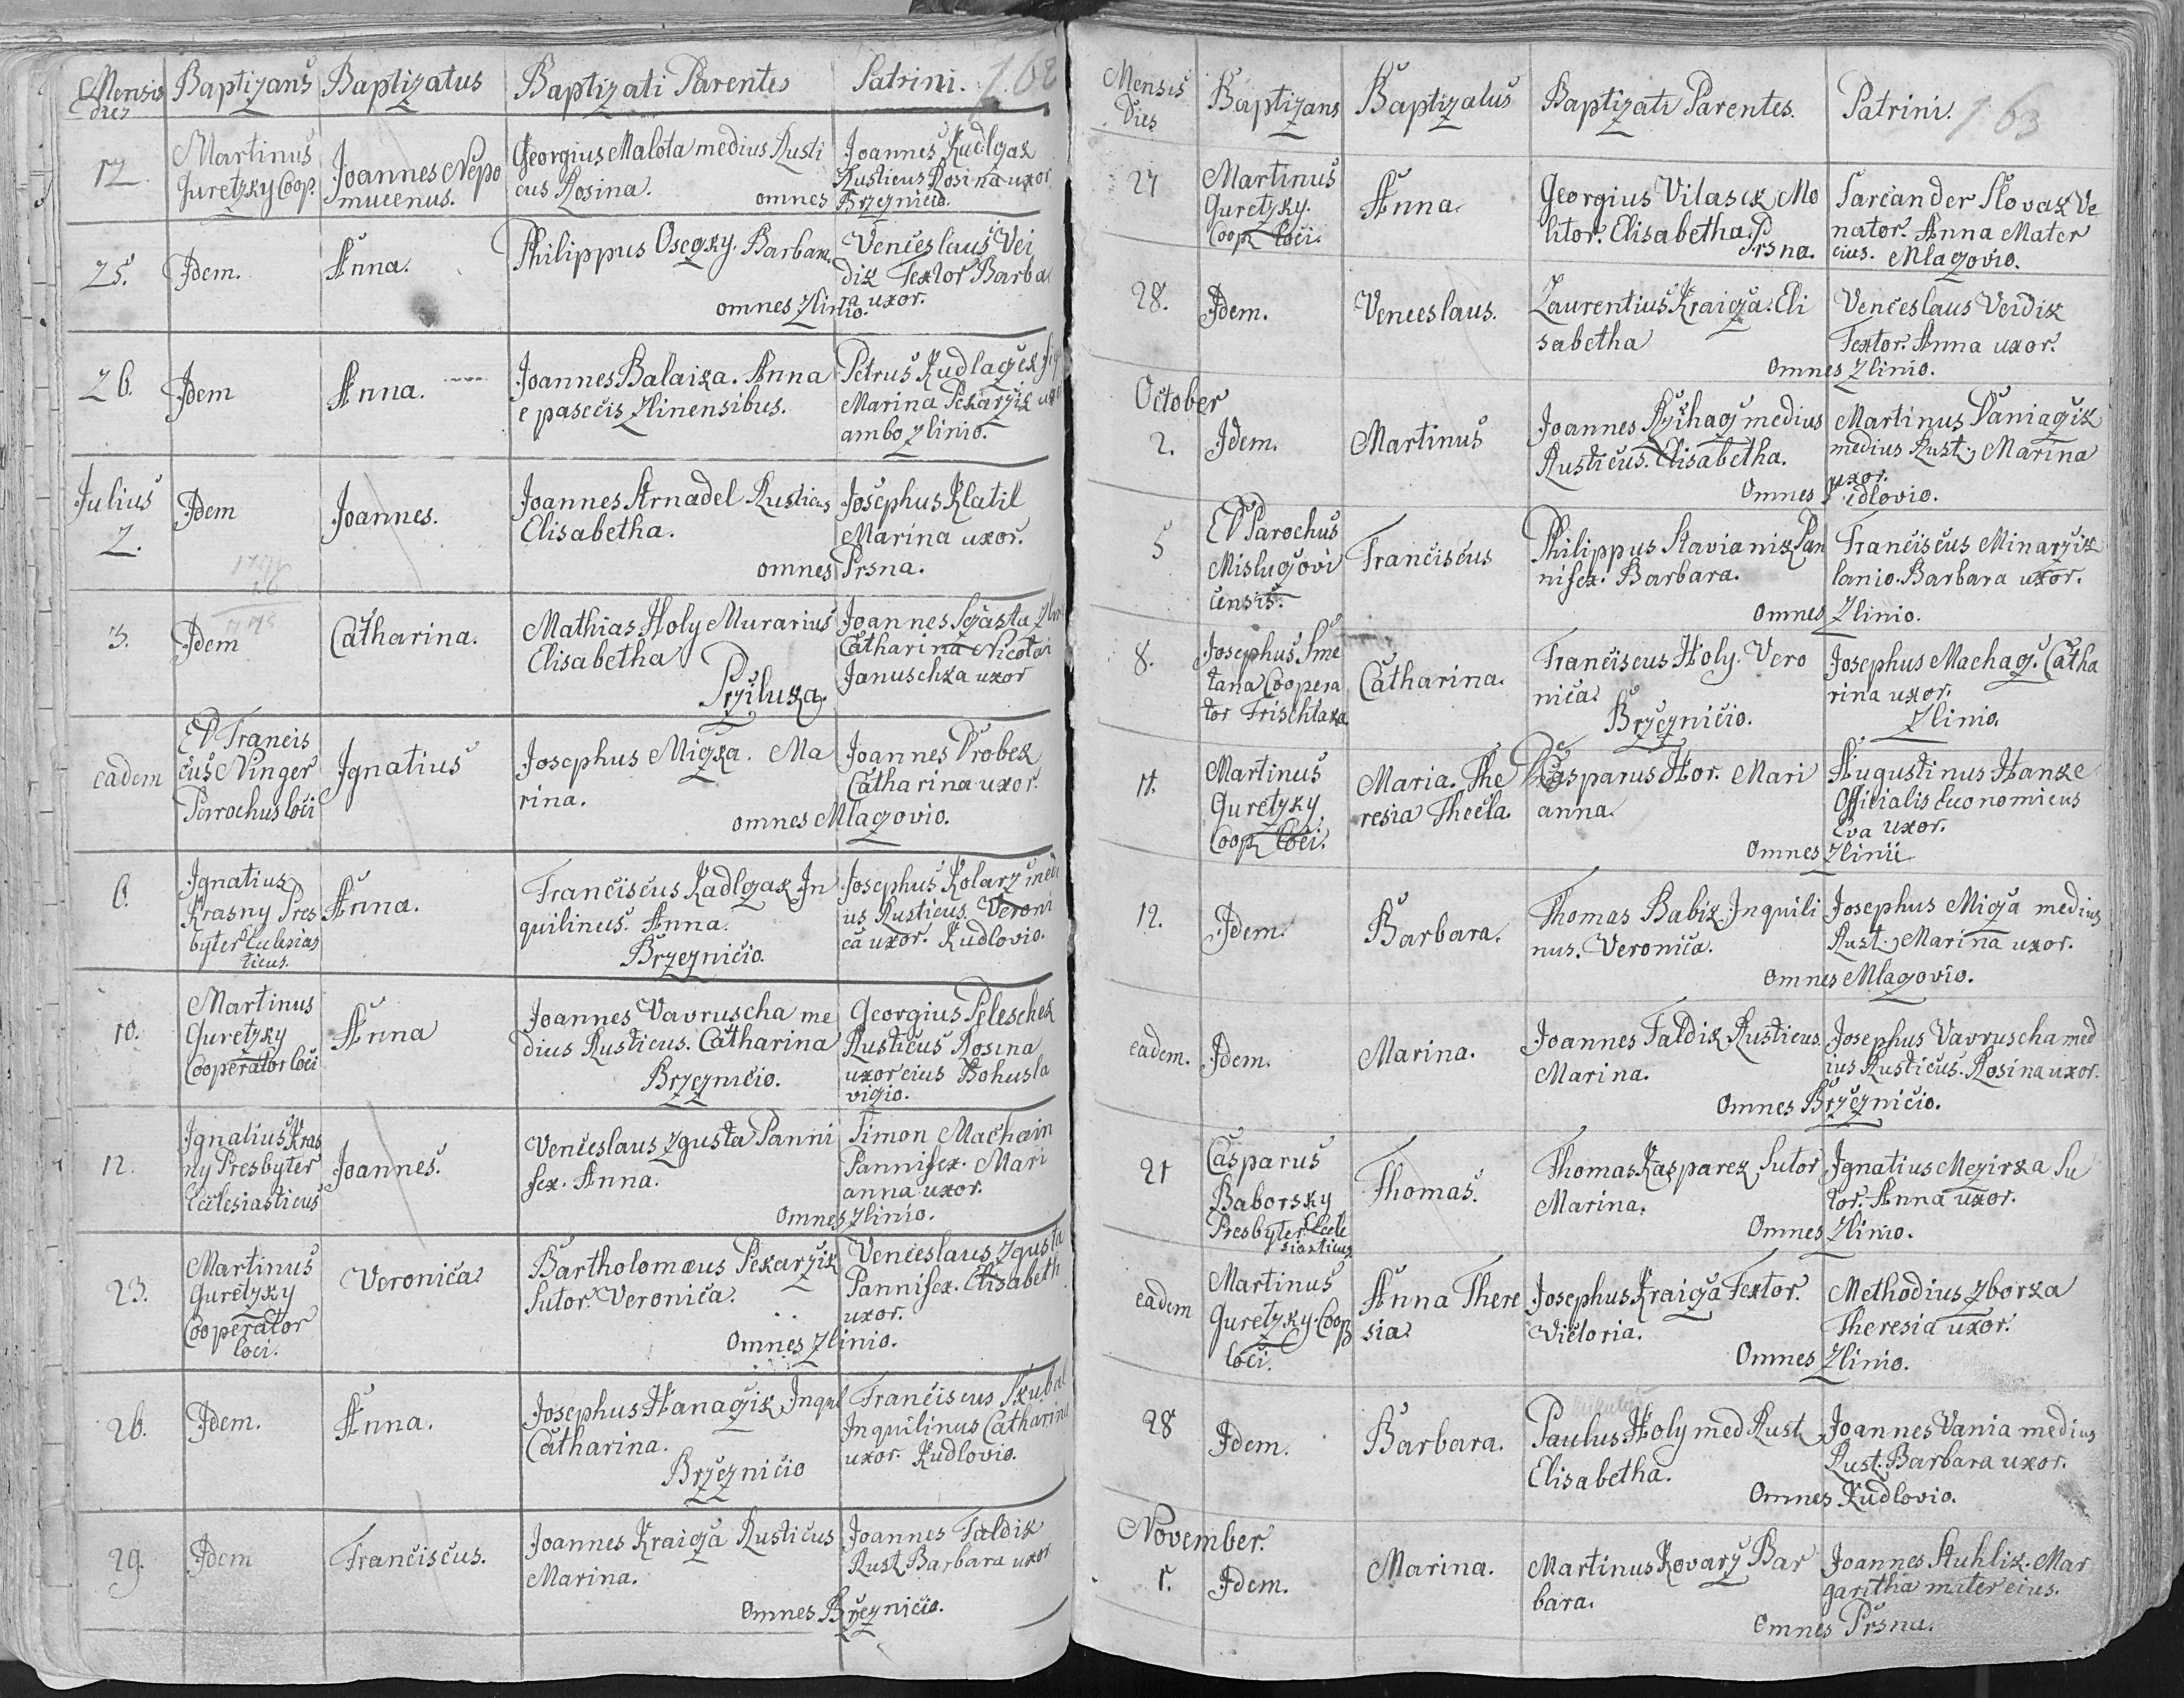 Mensis dies Baptizans Baptizatus Baptizati Parentes Patrini. 162
12 Martinus Guretzky Coop. Joannes Nepo
mucenus. Georgius Malota medius Rusti
cus Rosina. omnes Joannes Kudlgak
Rusticus Rosina uxor
Brzeznicio.
25. Idem. Anna. Philippus Osegky. Barbara. Venceslaus Vei
dik Textor Barba
ra uxor.
omnes Zlinio.
26. Idem Anna. Joannes Balaika. Anna
e pasecis Zlinensibus. Petrus Kudlagek
Marina Pekarzik
ambo Zlinio.
Julius
2. Idem Joannes. Joannes Arnadel Rusticus
Elisabetha. Josephus Klatil
Marina uxor.
omnes Prsna.
3. Idem Catharina. Mathias Holy Murarius
Elisabetha
Prziluka. Joannes Sczasta
Catharina Nicolai
Januschka uxor
eadem P Francis
cus Ninger
Parochus loci Ignatius Josephus Miczka. Ma
rina. Joannes Drobek
Catharina uxor.
omnes Mlazovio.
6. Ignatius
Krasny Pres
byter Ecclesias
ticus. Anna. Franciscus Kadlgak In
quilinus. Anna.
Brzeznicio. Josephus Kolarz medi
us Rusticus. Veroni
ca uxor. Kudlovio.
10. Martinus
Guretzky
Cooperator loci Anna Joannes Vavruscha me
dius Rusticus. Catharina
Brzeznicio. Georgius Peleschek
Rusticus Rosina
uxor eius Bohusla
vizio.
12. Ignatius Kras
ny Presbyter
Ecclesiasticus Joannes. Venceslaus Zgusta Panni
fex. Anna. Simon Machain
Pannifex. Mari
anna uxor.
Omnes Zlinio.
23. Martinus
Guretzky
Cooperator
loci. Veronica Bartholomæus Pekarzik
Sutor. Veronica. Venceslaus Zgusta
Pannifex. Elisabeth
uxor.
Omnes Zlinio.
26. Idem. Anna. Josephus Hanagik Inquil
Catharina.
Brzeznicio Franciscus Skubal
Inquilinus Catharina
uxor. Kudlovio.
29. Idem Franciscus. Joannes Kraicza Rusticus
Marina. Joannes Faldik
Rust. Barbara uxor
Omnes Brzeznicio.
Mensis dies Baptizans Baptizatus Baptizati Parentes. Patrini. 163
27 Martinus
Guretzky.
Coop loci. Anna. Georgius Vilasek Mo
litor. Elisabetha.
Prsna. Sarcander Slovak Ve
nator. Anna Mater
eius. Mlazovio.
28. Idem. Venceslaus. Laurentius Kraicza. Eli
sabetha Venceslaus Veidik
Textor. Anna uxor.
Omnes Zlinio.
October
2. Idem. Martinus Joannes Rzihag medius
Rusticus. Elisabetha. Martinus Daniagik
medius Rust., Marina
uxor.
Omnes Kudlovio.
5 P Parochus
Mislugovi
censis. Franciscus Philippus Stavianik Pan
nifex. Barbara. Franciscus Minarzik
lanio. Barbara uxor.
Omnes Zlinio.
8. Josephus Sme
tana Coopera
tor Frischtaka Catharina. Franciscus Holy. Vero
nica.
Brzeznicio. Josephus Machag. Catha
rina uxor.
Zlinio.
11. Martinus
Guretzky.
Coop loci. Maria. The
resia Thecla. Casparus Hor. Mari
anna. Augustinus Hanke
Officialis Œconomicus
Eva uxor.
Omnes Zlinii
12. Idem. Barbara. Thomas Babik Inquili
nus. Veronica. Josephus Micza medius
Rust., Marina uxor.
Omnes Mlazovio.
eadem. Idem. Marina. Joannes Faldik Rusticus.
Marina. Josephus Vavruscha med
ius Rusticus. Rosina uxor.
Omnes Brzeznicio.
21 Casparus
Baborsky
Presbyter Eccle
siasticus Thomas. Thomas Kasparek Sutor
Marina. Ignatius Mezirka Su
tor. Anna uxor.
Omnes Zlinio.
eadem Martinus
Guretzky. Coop
loci. Anna There
sia Josephus Kraicza Textor.
Victoria. Methodius Zborka
Theresia uxor.
Omnes Zlinio.
28 Idem. Barbara. Paulus Holy med Rust
Elisabetha. Joannes Vania medius
Rust. Barbara uxor.
Omnes Kudlovio.
November.
1. Idem. Marina. Martinus Kovarz Bar
bara. Joannes Stuhlik. Mar
garitha mater eius.
Omnes Prsna.